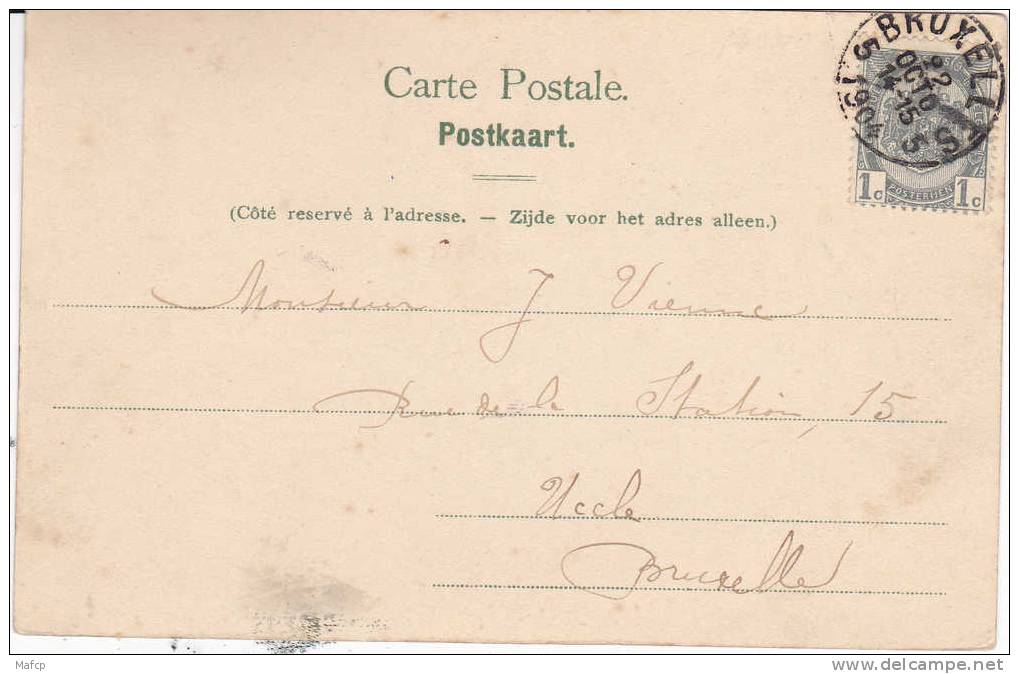 Carte Postale.
Postkaart.
(Côté reservé à l'adresse. — Zijde voor het adres alleen.)
BRUXELLES 5
22
OCTO
14-15
1904
5
POSTERIJEN
1c 1c
Monsieur J Vienne
Rue de la Station, 15
Uccle
Bruxelle
Mafcp
delcampe.net